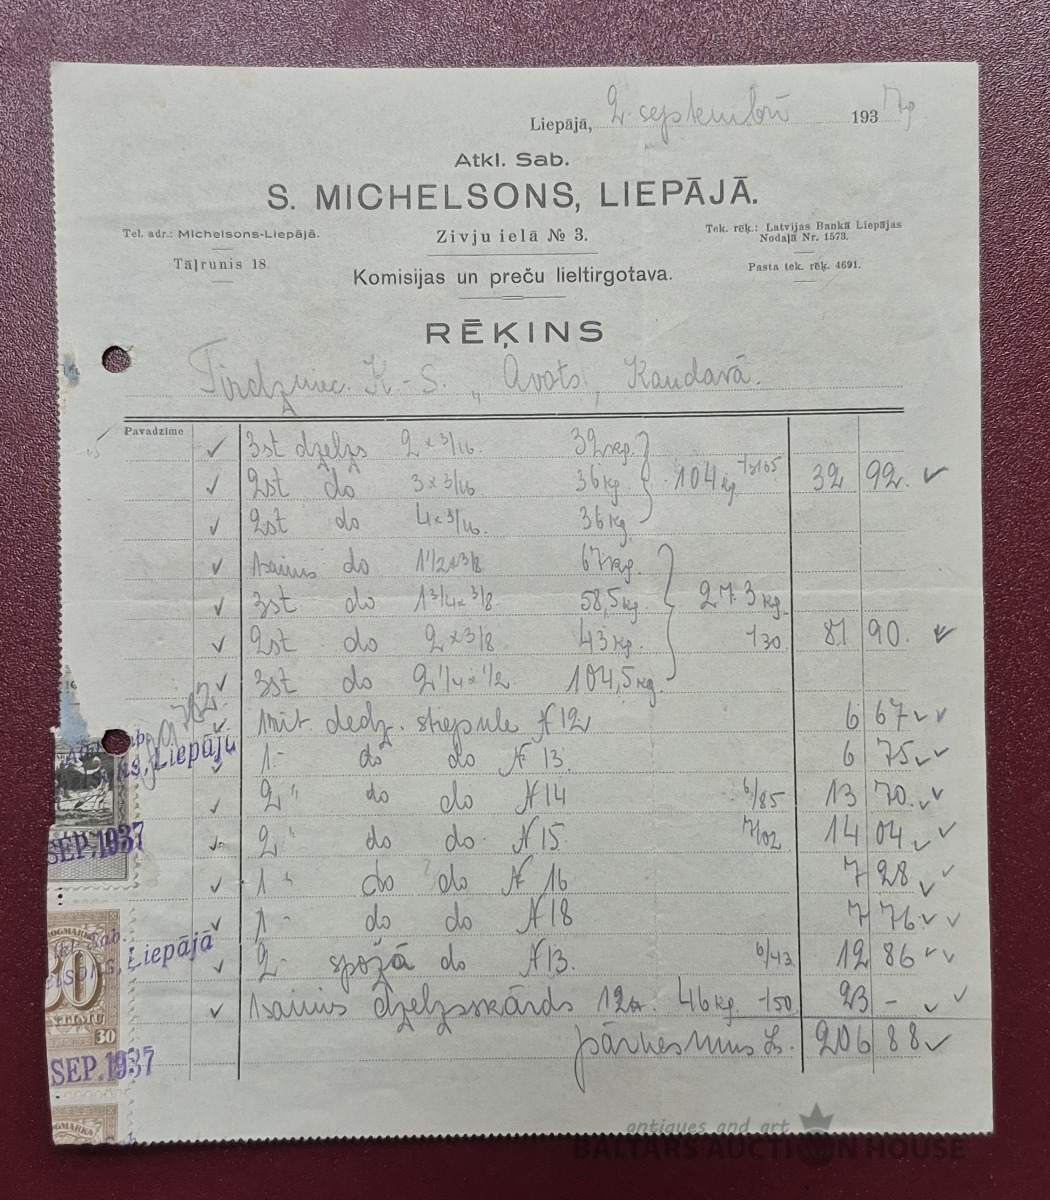 Liepājā, 2. septembrī 1937 g
Atkl. Sab.
S. MICHELSONS, LIEPĀJĀ.
Tel. adr.: Michelsons-Liepājā.
Zivju ielā № 3.
Tek. rēķ.: Latvijas Bankā Liepājas
Nodaļā Nr. 1573.
Tāļrunis 18.
Komisijas un preču lieltirgotava.
Pasta tek. rēķ. 4691.
RĒĶINS
Tirdzniec. K-S. „Avots„ Kandavā.
Pavadzīme
3st dzelzs 2 x 3/16. 32 kg.
2st do 3 x 3/16 36 kg 104 kg 32 92.
2st do 4 x 3/16. 36 kg.
1 sainis do 1 1/2 x 3/8 67 kg.
3st do 1 3/4 x 3/8 58,5 kg. 273 kg.
2st do 2 x 3/8 43 kg. -/30 81 90.
3st do 2 1/4 x 1/2. 104,5 kg.
1 mit. dedz. stiepule N 12 6 67
1 - do do N 13. 6 75
2 " do do N 14 6/85 13 70.
2 " do do. N 15 7/02 14 04
1 " do do N 16 7 28
1 - do do N 18 7 76
2 - spožā do N 13. 6/43 12 86
1 sainis dzelzskārds 12 46 kg. -/50 23 -
pārnesums Ls. 206 88
Liepājā
SEP. 1937
Liepājā
30
SEP. 1937
antiques and art
BALTARS AUCTION HOUSE